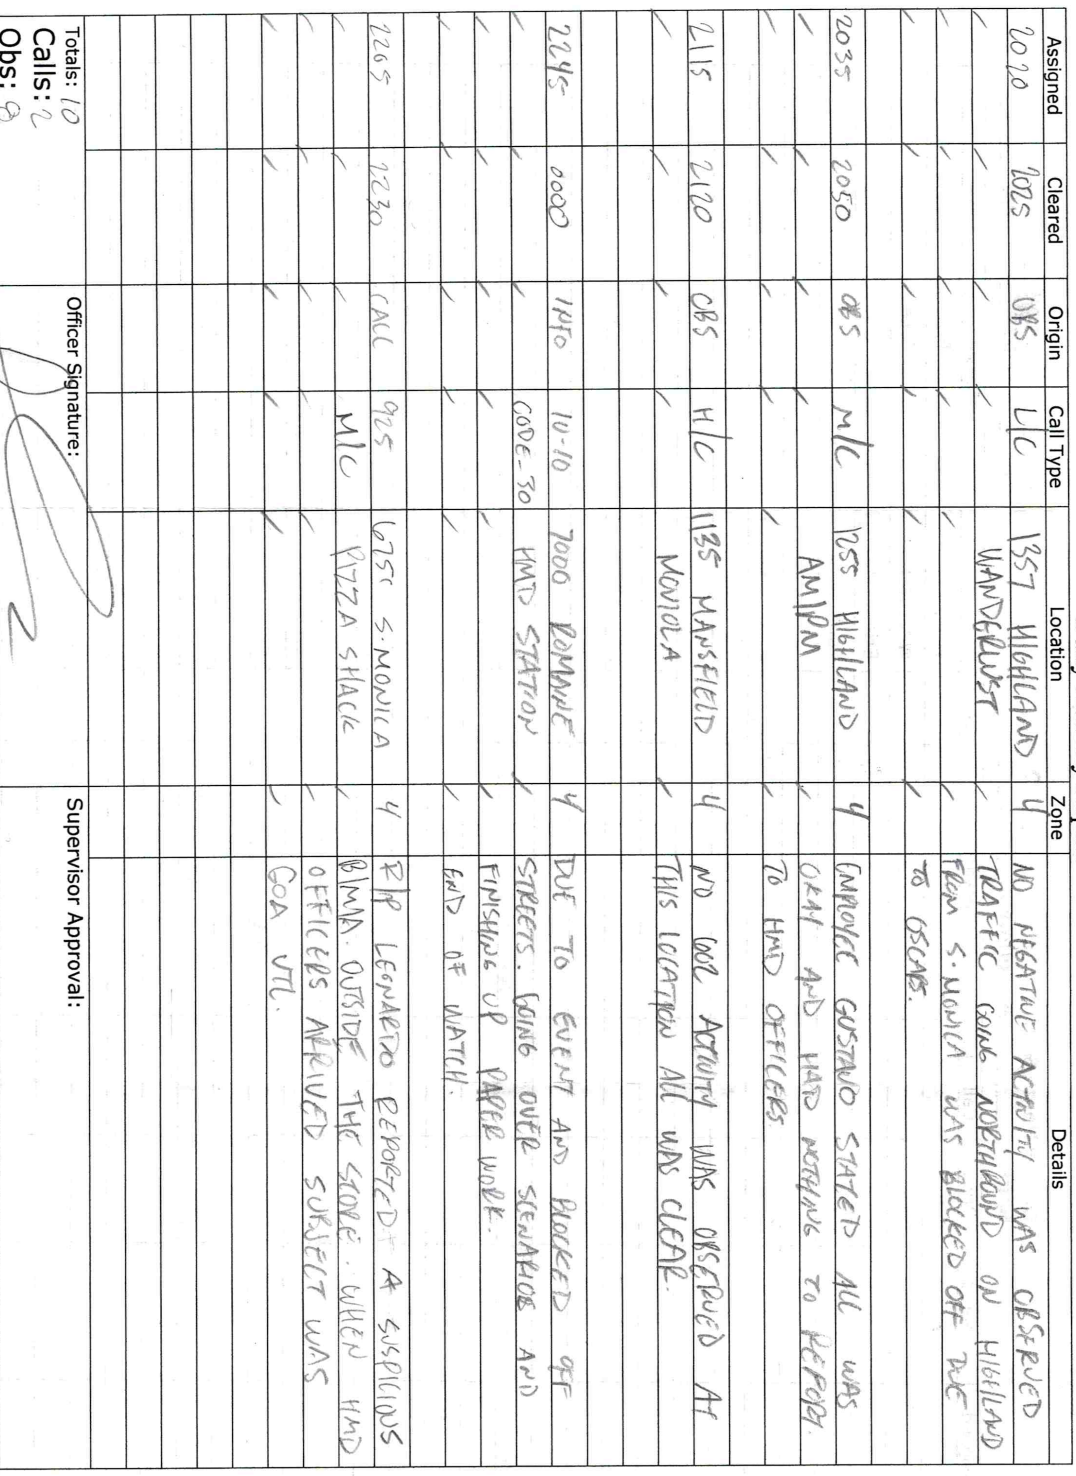 Assigned Cleared Origin Call Type Location Zone Details
2020 2025 OBS L/C 1357 HIGHLAND 4 NO NEGATIVE ACTIVITY WAS OBSERVED
WANDERLUST TRAFFIC GOING NORTHBOUND ON HIGHLAND
FROM S. MONICA WAS BLOCKED OFF DUE
TO OSCARS.
2035 2050 OBS M/C 1255 HIGHLAND 4 EMPLOYEE GUSTAVO STATED ALL WAS
AM/PM OKAY AND HAD NOTHING TO REPORT
TO HMD OFFICERS.
2115 2120 OBS H/C 1135 MANSFIELD 4 NO QOL ACTIVITY WAS OBSERVED AT
MOVIOLA THIS LOCATION ALL WAS CLEAR.
2245 0000 INFO 10-10 7000 ROMAINE 4 DUE TO EVENT AND BLOCKED OFF
CODE-30 HMD STATION STREETS. GOING OVER SCENARIOS AND
FINISHING UP PAPER WORK.
END OF WATCH.
2205 2230 CALL 925 S. MONICA 4 R/P LEONARDO REPORTED A SUSPICIOUS
M/C PIZZA SHACK B/M/A OUTSIDE THE STORE. WHEN HMD
OFFICERS ARRIVED SUBJECT WAS
GOA UTL.
Totals: 10 Officer Signature: Supervisor Approval:
Calls: 2
Obs: 8